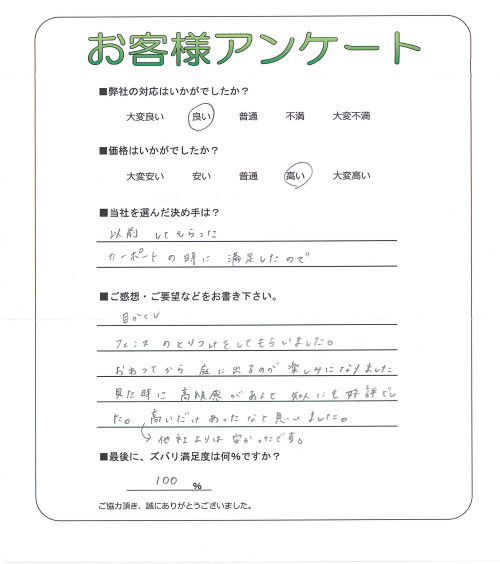 お客様アンケート
■弊社の対応はいかがでしたか？
大変良い 良い 普通 不満 大変不満
■価格はいかがでしたか？
大変安い 安い 普通 高い 大変高い
■当社を選んだ決め手は？
以前 してもらった
カーポートの時に 満足したので
■ご感想・ご要望などをお書き下さい。
目かくし
フェンスのとりつけをしてもらいました。
おわってから 庭に出るのが 楽しみになりました
見た時に 高級感があって 知人にも好評でし
た。高いだけあったなと思いました。
他社よりは 安かったです。
■最後に、ズバリ満足度は何%ですか？
100 %
ご協力頂き、誠にありがとうございました。